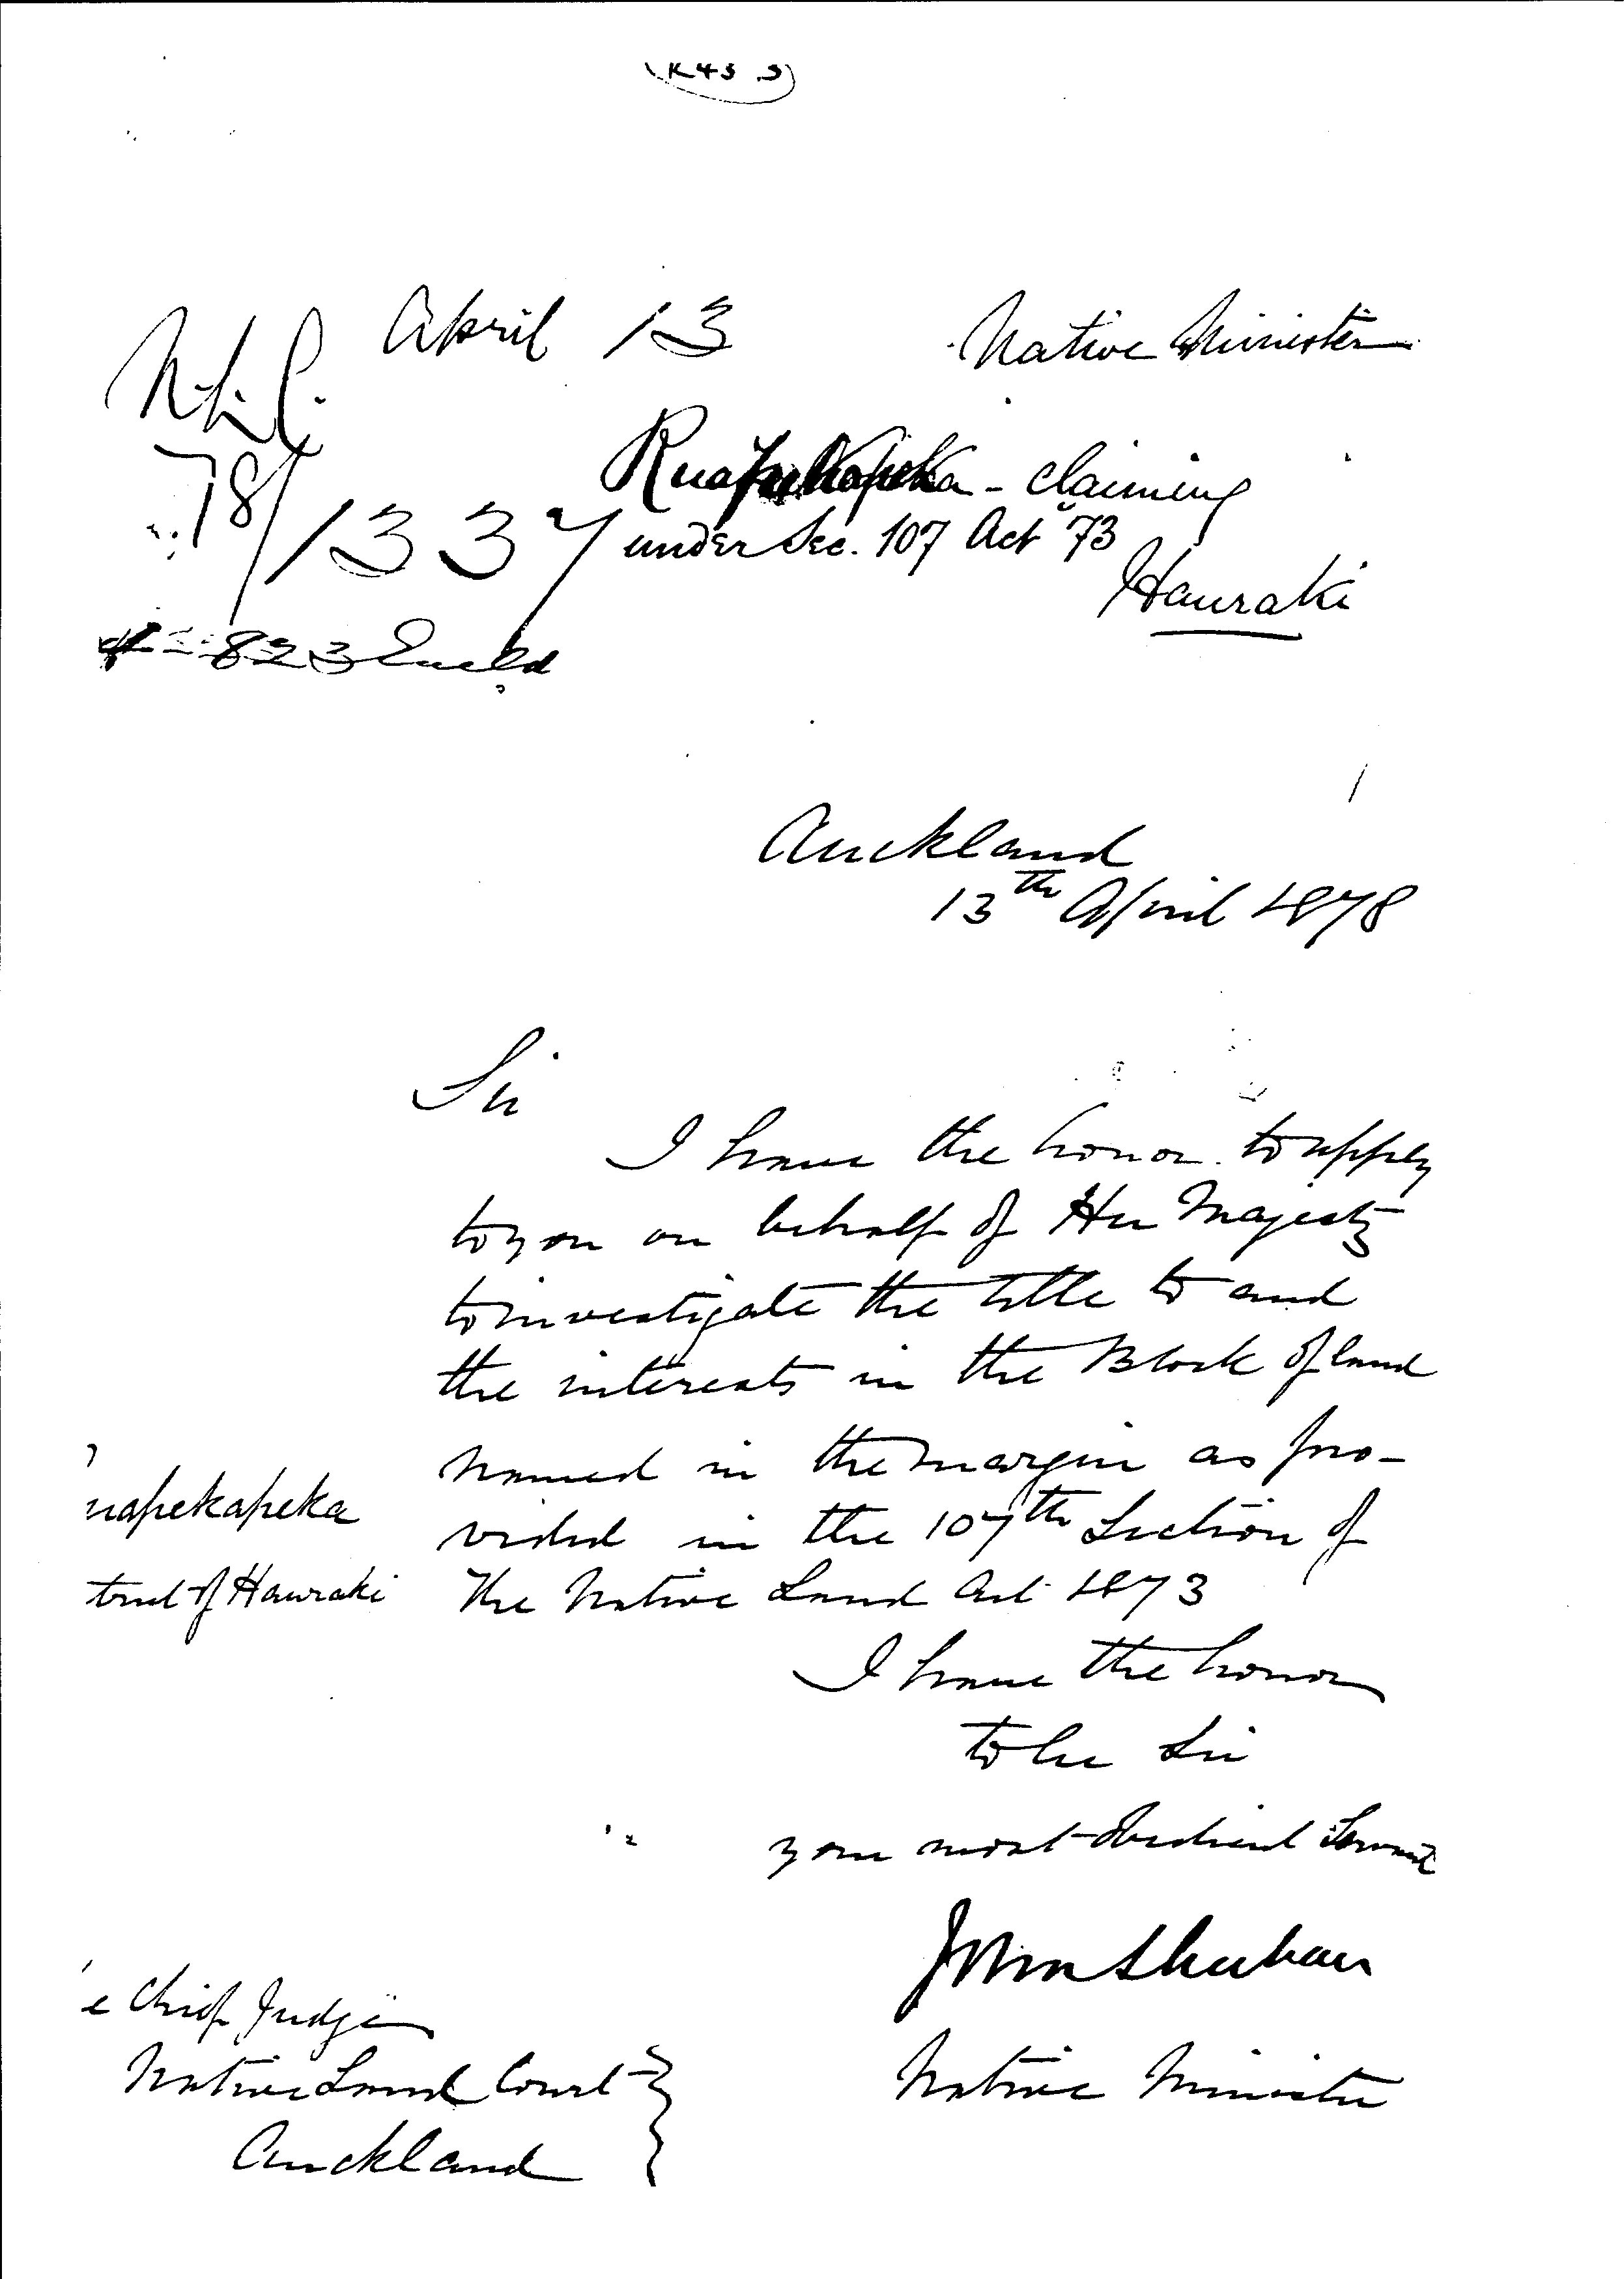 (K43 .S)
April 13
Native Minister
N.L.C.
78/1337
Ruapekapeka - claiming
under Sec. 107 Act 73
Hauraki
823
Auckland
13th April 1878
Sir
I have the honor to apply
to you on behalf of Her Majesty
to investigate the title to and
the interests in the Block of land
named in the margin as pro-
vided in the 107th Section of
The Native Land Act 1873
uapekapeka
trict of Hauraki
I have the honor
to be Sir
your most obedient Servant
John Sheehan
Native Minister
e Chief Judge
Native Land Court
Auckland